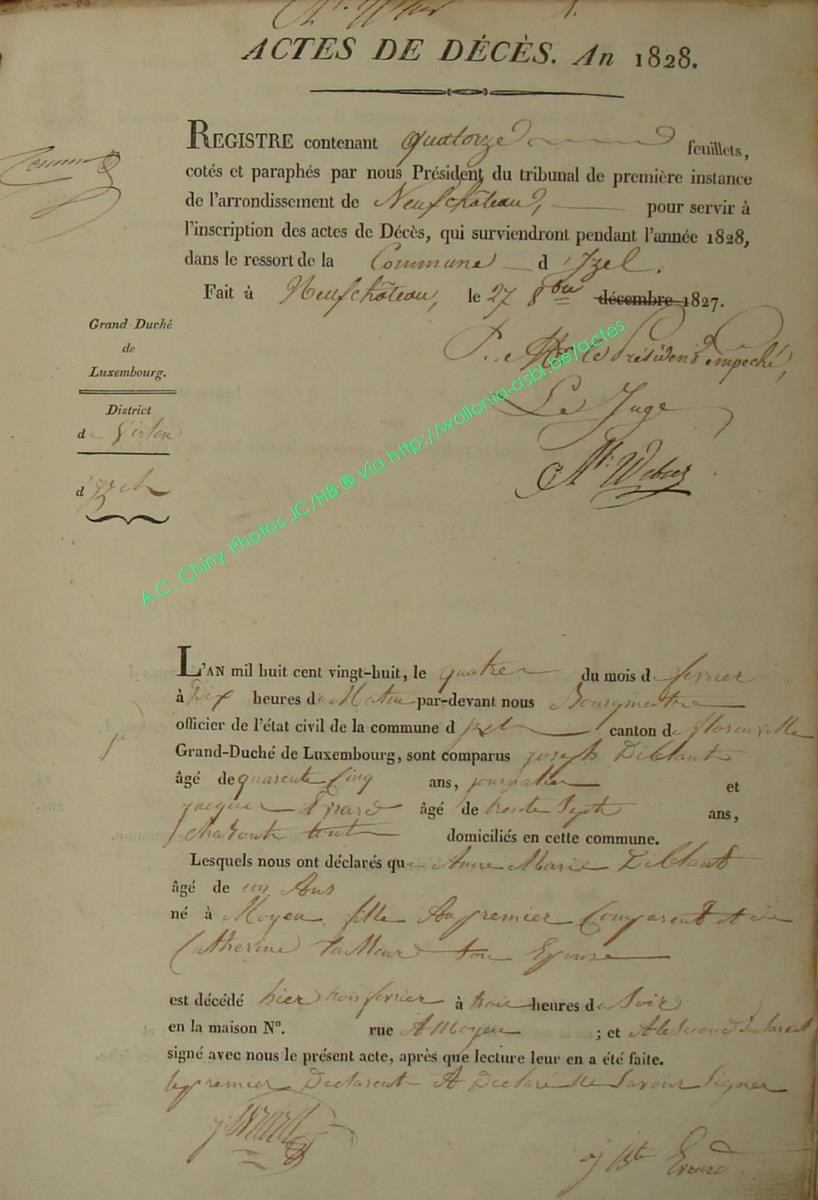 ACTES DE DÉCÈS. An 1828.
REGISTRE contenant quatorze feuillets,
cotés et paraphés par nous Président du tribunal de première instance
de l'arrondissement de Neufchâteau, pour servir à
l'inscription des actes de Décès, qui surviendront pendant l'année 1828,
dans le ressort de la Commune d'Izel.
Fait à Neufchâteau, le 27 8bre décembre 1827.
Grand Duché
de
Luxembourg.
District
de Virton
d'Izel
P. le Président empêché,
Le Juge
Weber
A.C. Chiny Photos JC/HB ® Via http://wallonia-asbl.be/actes
L'AN mil huit cent vingt-huit, le quatre du mois de fevrier
à Dix heures du Matin par-devant nous Bourgmestre
officier de l'état civil de la commune d izel canton de florenville
Grand-Duché de Luxembourg, sont comparus joseph Diblant
âgé de quarente Cinq ans, journalier et
jacques Evrard âgé de trente Sept ans,
domiciliés en cette commune.
Lesquels nous ont déclarés que Anne Marie Diblant
âgé de un Ans
né à Moyen fille Du premier Comparent et de
Catherine tailleur son Epouse
est décédé hier trois fevrier à trois heures du Soir
en la maison N°. rue A Moyen ; et A le Second declarent
signé avec nous le présent acte, après que lecture leur en a été faite.
le premier Declarent A Declaré ne Savoir Signer
j Evrard
j Bte Evrard